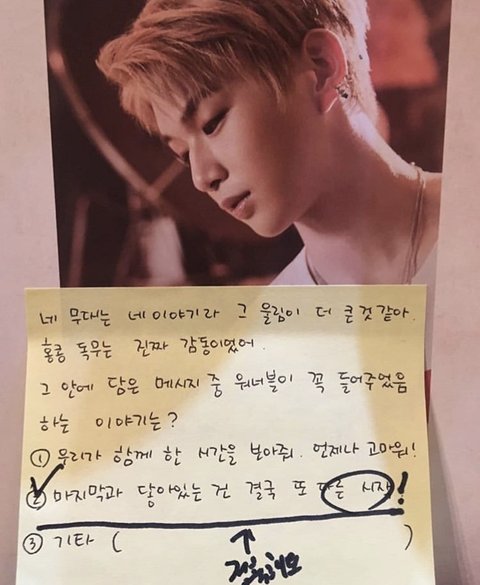 네 무대는 네 이야기라 그 울림이 더 큰 것 같아.
홍콩 독무는 진짜 감동이었어.
그 안에 담은 메시지 중 워너블이 꼭 들어주었음
하는 이야기는?
① 우리가 함께 한 시간을 보아줘. 언제나 고마워!
② 마지막과 닿아있는 건 결국 또 다른 시작!
③ 기타 ( )